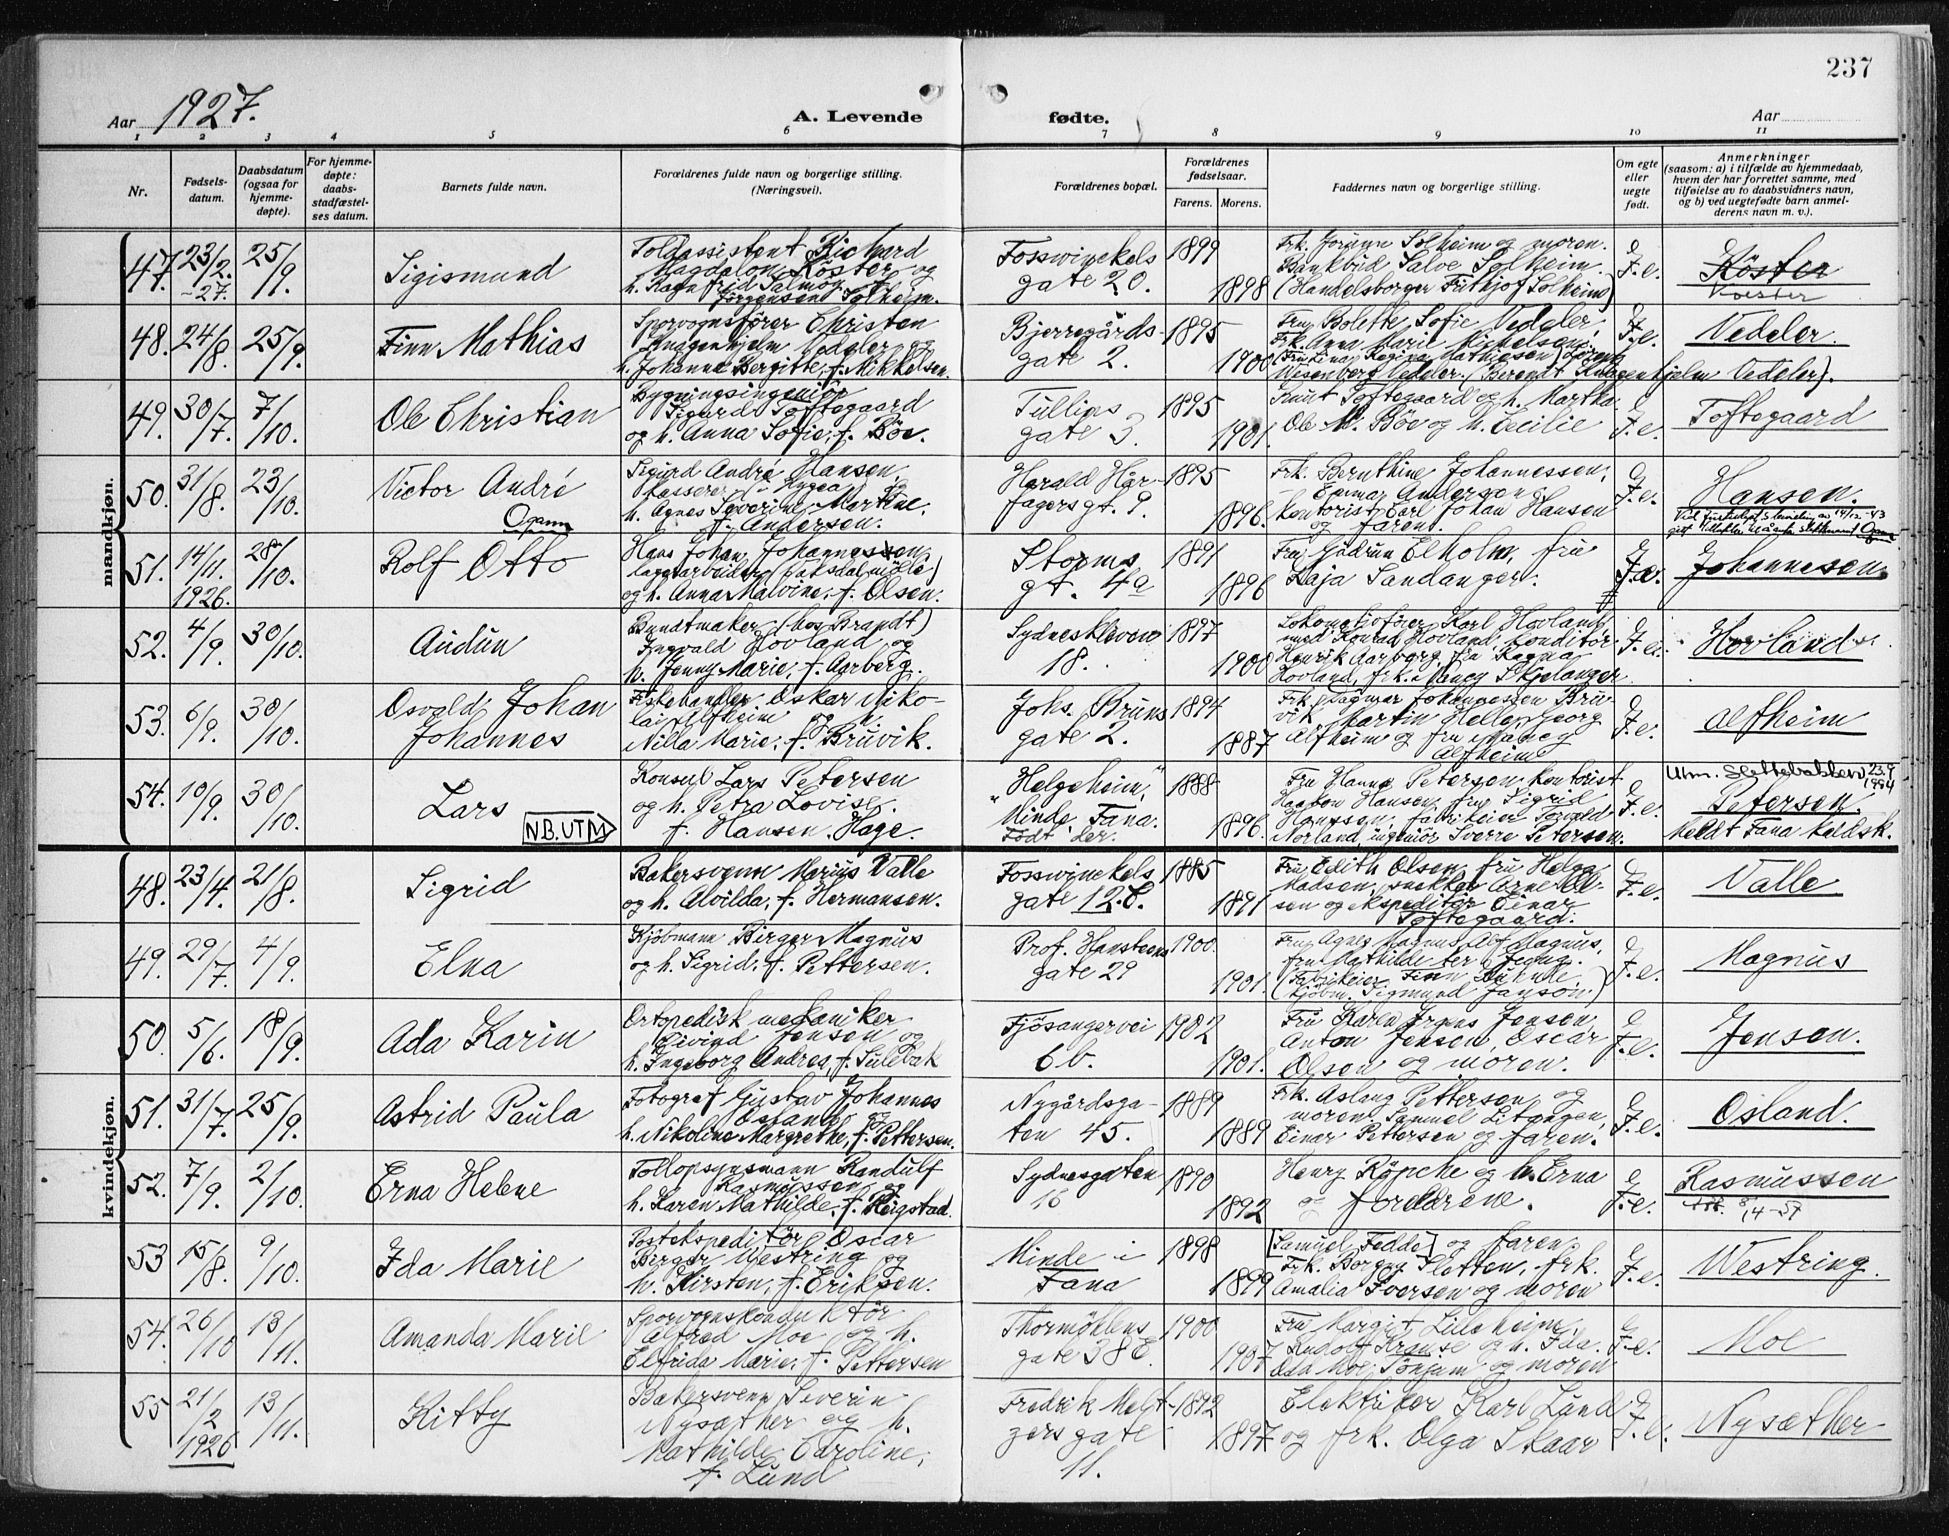 237
Aar 1927.
A. Levende
fødte.
Aar
1 2 3 4 5 6 7 8 9 10 11
Nr.
Fødsels-
datum.
Daabsdatum
(ogsaa for
hjemme-
døpte).
For hjemme-
døpte:
daabs-
stadfæstel-
ses datum.
Barnets fulde navn.
Forældrenes fulde navn og borgerlige stilling.
(Næringsvei).
Forældrenes bopæl.
Forældrenes
fødselsaar.
Farens. Morens.
Faddernes navn og borgerlige stilling.
Om egte
eller
uegte
født.
Anmerkninger
(saasom: a) i tilfælde av hjemmedaab,
hvem der har forrettet samme, med
tilføielse av to daabsvidners navn,
og b) ved uegtefødte barn anmel-
derens navn m. v.).
mandkjøn.
47. 23/2. -27. 25/9. Sigismund
Toldassistent Richard
Magdalon Köster og
h. Ragnfrid Salmög
Jörgensen Solheim.
Fosswinckels
gate 20.
1899
1898
Frk. Jorunn Solheim og moren.
Bankbud Salve Solheim
(Handelsborger Frithjof Solheim)
F. e.
Köster
Koester
48. 24/8. 25/9. Finn Mathias
Sporvognsfører Christen
Knagenhjelm Vedeler og
h. Johanna Bergitte, f. Mikkelsen.
Bjerregårds-
gate 2.
1895
1900
Fru Bolette Sofie Vedeler,
Frk. Anna Marie Michelsen.
(Fru Lina Regina Mathiesen) Lorentz
Wesenberg Vedeler. (Berendt Knagenhjelm Vedeler).
F. e.
Vedeler.
49. 30/7. 7/10. Ole Christian
Bygningsingeniör
Sigurd Toftegaard
og h. Anna Sofie, f. Böe.
Tullins
gate 3.
1895
1901.
Knut Toftegaard og h. Martha.
Ole M. Böe og h. Cecilie
F. e.
Toftegaard
50. 31/8. 23/10. Victor André
Ogann
Sigurd André Hansen
kasserer i Hygea og
h. Agnes Severine Martine,
f. Andersen.
Harald Hår-
fagersgt. 9.
1895
1896.
Frk. Bernthine Johannessen,
Gunnar Anderson
kontorist Carl Johan Hansen
og faren.
F. e.
Hansen.
51. 14/11. 1926. 28/10. Rolf Otto
Hans Johan Johannessen,
lagerarbeider (Vaksdal mölle)
og h. Anna Malvine, f. Olsen.
Storms
gt. 4a
1891
1896
Fru Gudrun Elholm, fru
Kaja Sandanger.
F. e.
Johannesen
52. 4/9. 30/10. Audun
Bundtmaker (hos Brandt)
Ingvald Hovland, og
h. Jenny Marie, f. Aarberg.
Sydneskleven
18.
1897
1900
Lokomotivföer Karl Hovland,
med Konrad Hovland, konditor
Henrik Aarberg, fru Ragna
Hovland, frk. Nancy Skjelanger
F. e.
Hovland
53. 6/9. 30/10. Osvald Johan
Johannes
Fiskehandler Oskar Niko-
lai Alfheim og h.
Nilla Marie, f. Bruvik.
Johs. Bruns
gate 2.
1894
1887
Frk. Dagmar Johannessen Bru-
vik, Martin Helle, Georg
Alfheim og fru Nancy
Alfheim
F. e.
Alfheim
54. 10/9. 30/10. Lars
N.B. UTM
Konsul Lars Petersen
og h. Petra Lovise,
f. Hansen Hage.
"Helgeheim,"
Minde, Fana.
Födt der.
1888
1896.
Fru Hanna Petersen, kontorist
Haakon Hansen, fru Sigrid
Hanssen, fabrikeier Torvald
Norland, ingeniör Sverre Petersen.
F. e.
Utm. Slettebakken 23.9
1994
Petersen.
Meldt Fana kldsk.
kvindekjøn.
48. 23/4. 21/8. Sigrid
Bakersvenn Marius Valle
og h. Alvilda, f. Hermansen.
Fosswinckels
gate 12.b.
1885
1891
Fru Edith Olsen, fru Helga
Madsen, snekker Arne Ol-
sen og ekspeditör Einar
Toftegaard.
F. e.
Valle
49. 29/7. 4/9. Elna
Kjöbmann Birger Magnus
og h. Sigrid, f. Pettersen.
Prof. Hansteens
gate 29
1900.
1901.
Fru Agnes Magnus, Alf Magnus,
fru Mathilde ter Jegug.
(Fabrikeier Finn Buhnde,
kjöbm. Sigmund Janson)
F. e.
Magnus
50. 5/6. 18/9. Ada Karin
Ortopedisk mekaniker
Eivind Jensen og
h. Ingeborg Andrea, f. Tulebak
Fjösangervei
6b.
1902
1901.
Fru Karen Jensen,
Anton Jensen, Oscar
Olsen og moren.
F. e.
Jensen.
51. 31/7. 25/9. Astrid Paula
Fotograf Gustav Johannes
Osland og
h. Nikoline Margrethe, f. Pettersen.
Nygårdsga-
ten 45.
1889
1889
Frk. Aslaug Pettersen og
moren. Samuel Litangen,
Einar Pettersen og faren.
F. e.
Osland.
52. 7/9. 2/10. Erna Helene
Tollopsynsmann Randulf
Rasmussen og
h. Karen Mathilde, f. Reigstad.
Sydnesgaten
16
1890
1892
Henry Röpcke og h. Erna
og foreldrene.
F. e.
Rasmussen
8/4-57
53 15/8. 9/10. Ida Marie
Postekspeditör Oscar
Berger Westring og
h. Kirsten, f. Eriksen.
Minde i
Fana
1898
1899
[Samuel Fedde] og faren
Frk. Borgny Sletten, frk.
Amalia Iversen og moren
F. e.
Westring.
54. 26/10 13/11. Amanda Marie
Sporvognskonduktör
Alfred Moe og h.
Elfrida Marie, f. Pettersen
Thormöhlens
gate 38E.
1900
1907
Fru Margit Lilleheim,
Rudolf Krause og h. Ida.
Moe, Tönjum og moren
F. e.
Moe
55 21/2 1926 13/11. Kitty
Bakersvenn Severin
Nysæther og h.
Mathilde Caroline,
f. Lund
Fredrik Melt-
zers gate
11.
1892
1897
Elektriker Karl Lund
og frk. Olga Skaar
F. e.
Nysæther